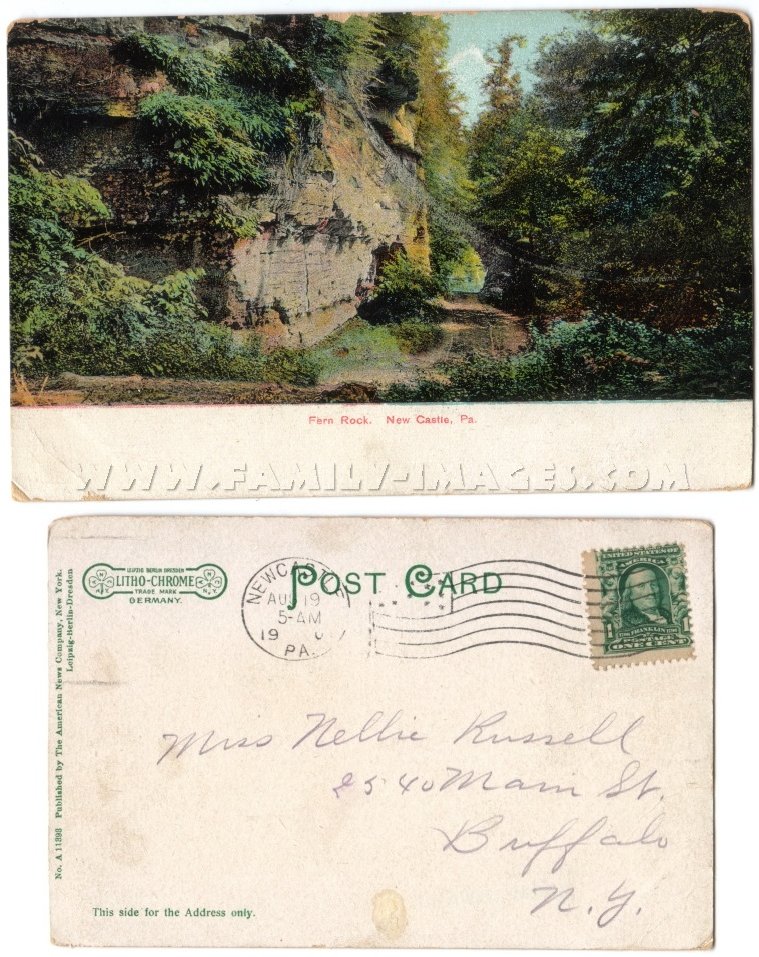 Fern Rock. New Castle, Pa.
WWW.FAMILY-IMAGES.COM
No. A 11393 Published by The American News Company, New York.
Leipzig-Berlin-Dresden
LEIPZIG BERLIN DRESDEN
LITHO-CHROME
TRADE MARK
GERMANY.
N.Y.
POST CARD
NEWCASTLE
AUG 19
5-AM
PA.
UNITED STATES OF
AMERICA
FRANKLIN
POSTAGE
1 ONE CENT 1
Miss Nellie Russell
2540 Main St.
Buffalo
N.Y.
This side for the Address only.